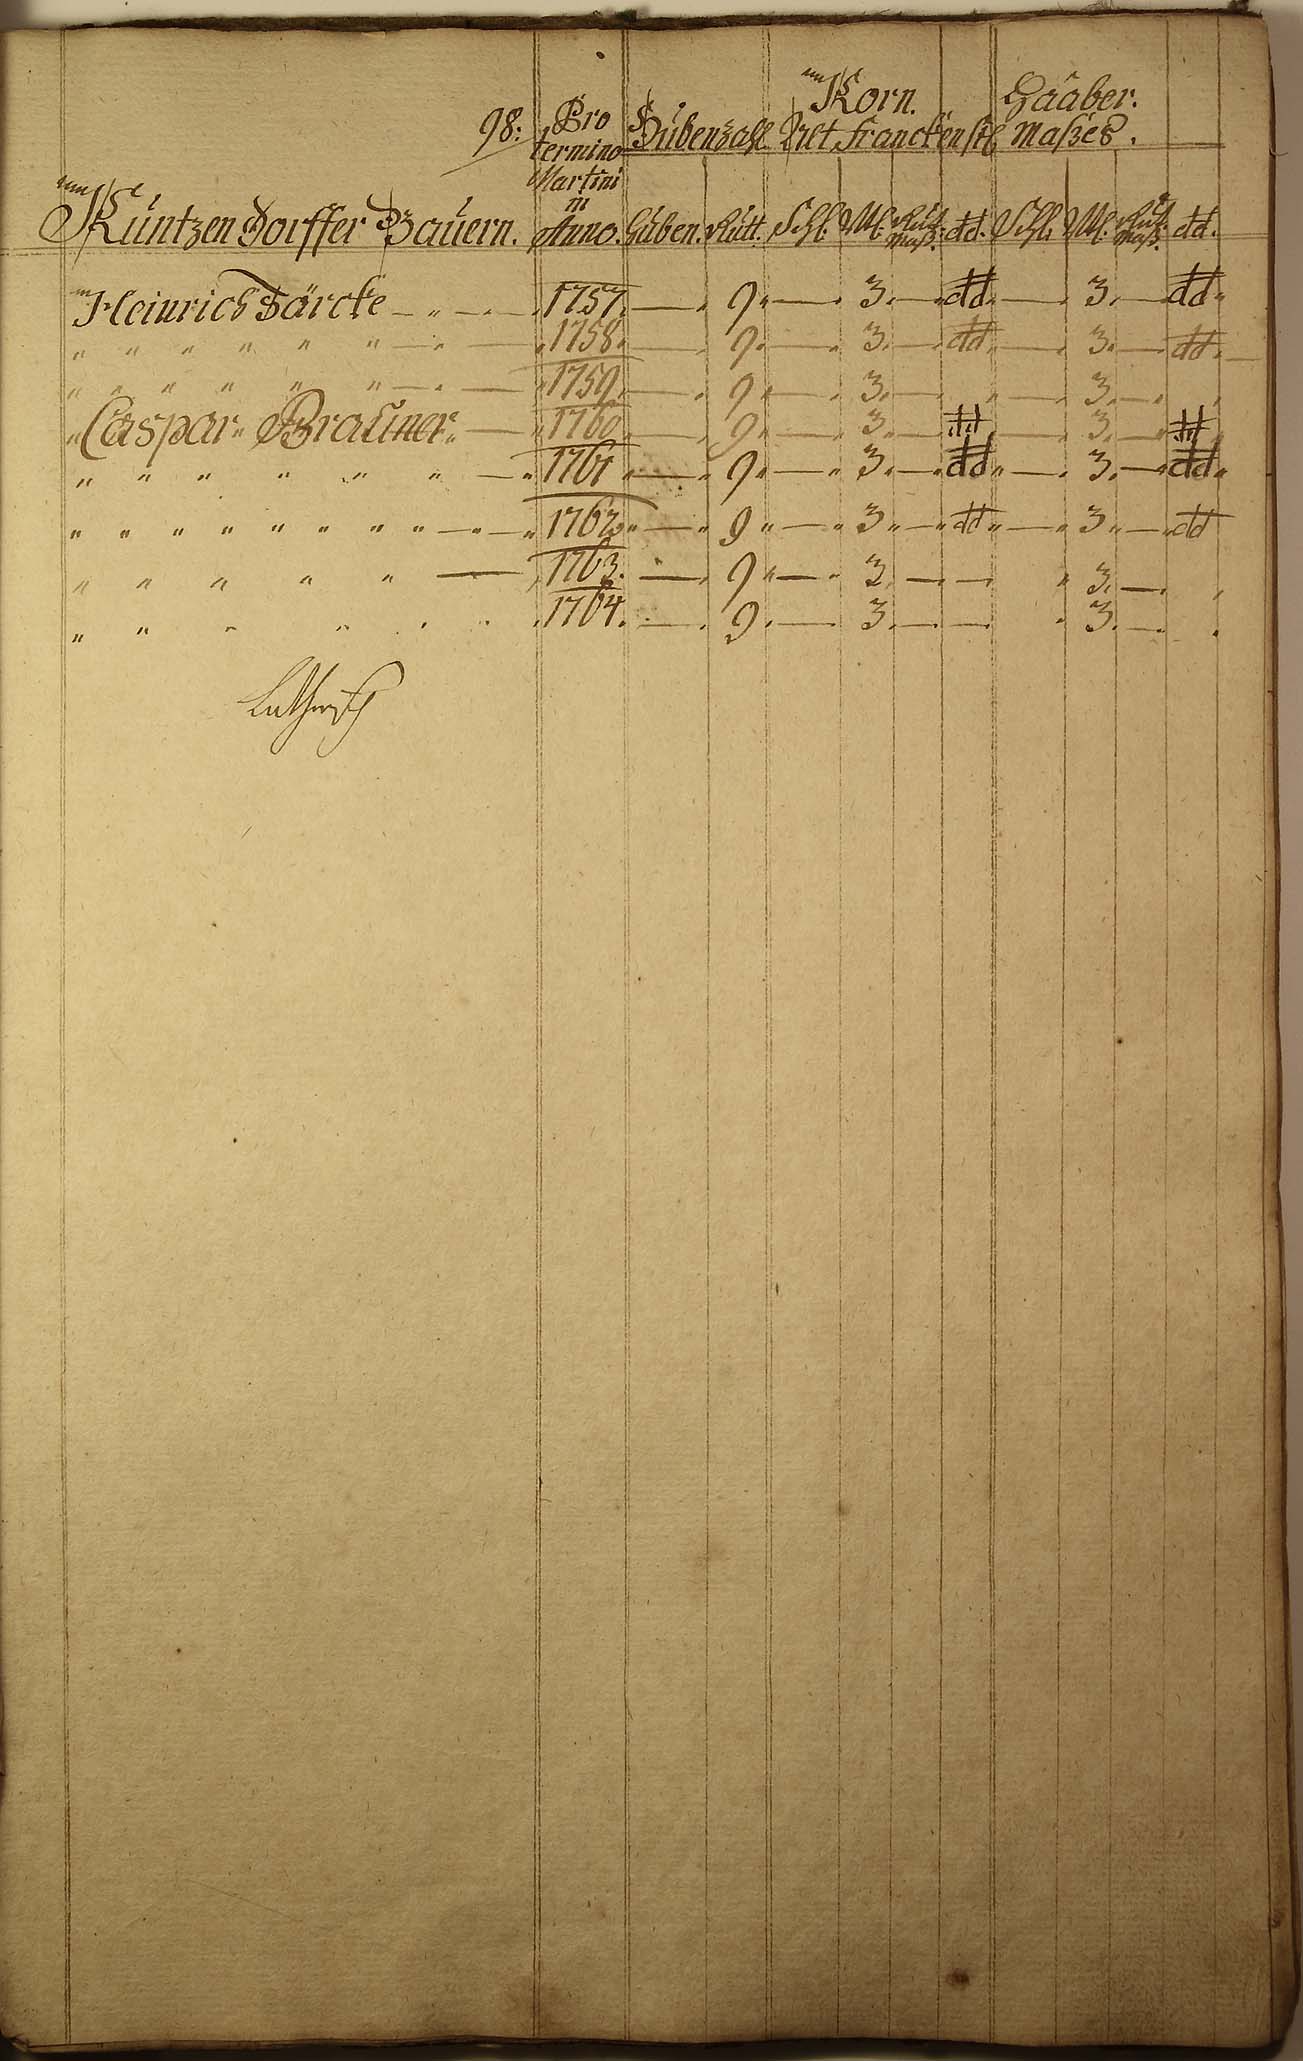 Korn. Haaber.
98. Pro Hubenzahl Alt Franckenst Maßes.
termino
Martini
in
Kuntzendorffer Bauern. Anno. Huben. Rutt. Schl. Vtl. Maß. dd. Schl. Vtl. Maß. dd.
Heinrich Järcke — " — 1757. — 9 " — 3. — dd — 3. — dd "
" " " " " " — " — " 1758. — 9. — 3. — dd — 3. — dd.
" " " " " " — " — " 1759. — 9 " — 3. — " 3. — "
" Caspar Brauner " — " 1760 — 9 " — 3. — dd — 3. — dd
" " " " " " — " 1761 " — 9 " — " 3. — dd " — 3. — dd "
" " " " " " " " " — " — " 1762 " — " 9 " — " 3 " — " dd " — " 3 " — dd
" " " " " — 1763. — 9 " — " 3. — — " 3. — "
" " " " " " 1764. — 9. — 3. — — " 3. — .